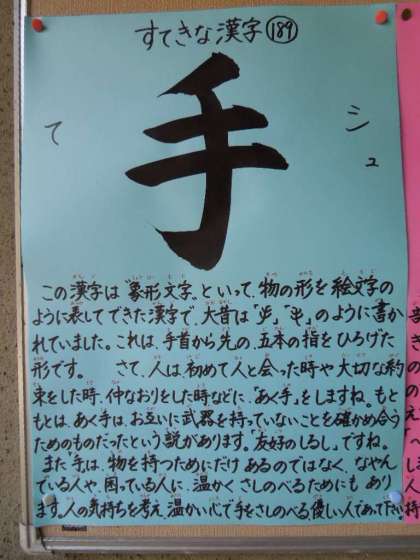 すてきな漢字 189
手
て
シュ
この漢字は"象形文字"といって、物の形を絵文字の
ように表してできた漢字で、大昔は「」「」のように書か
れていました。これは、手首から先の、五本の指をひろげた
形です。 さて、人は初めて人と会った時や大切な約
束をした時、仲なおりをした時などに、「あく手」をしますね。もと
もとは、あく手は、お互いに武器を持っていないことを確かめ合う
ためのものだったという説があります。「友好のしるし」ですね。
また「手」は、物を持つためにだけあるのではなく、なやん
でいる人や、困っている人に、温かくさしのべるためにもあり
ます。人の気持ちを考え、温かい心で手をさしのべる、優しい人であって下さい。